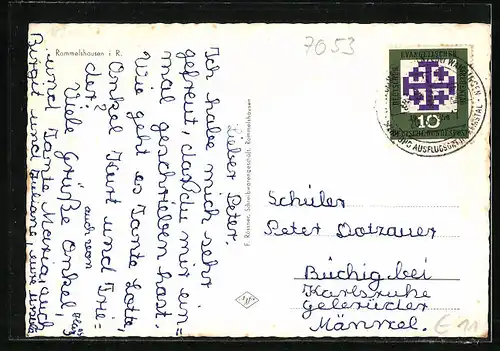 Rommelshausen i. R.
7053
Lieber Peter.
Ich habe mich sehr
gefreut, daß du mir ein=
mal geschrieben hast.
Wie geht es Tante Lotte,
Onkel Kurt und Frie=
der.
Viele Grüße Onkel,
auch von
und Tante Maria auch
Birgit und Juliane, eure
F. Rössner, Schreibwarengeschäft, Rommelshausen
Schüler
Peter Dotzauer
Büchig bei
Karlsruhe
Gebrüder
E 11
DEUTSCHER
EVANGELISCHER
KIRCHENTAG
10
DEUTSCHE BUNDESPOST
AUSFLUGSORT